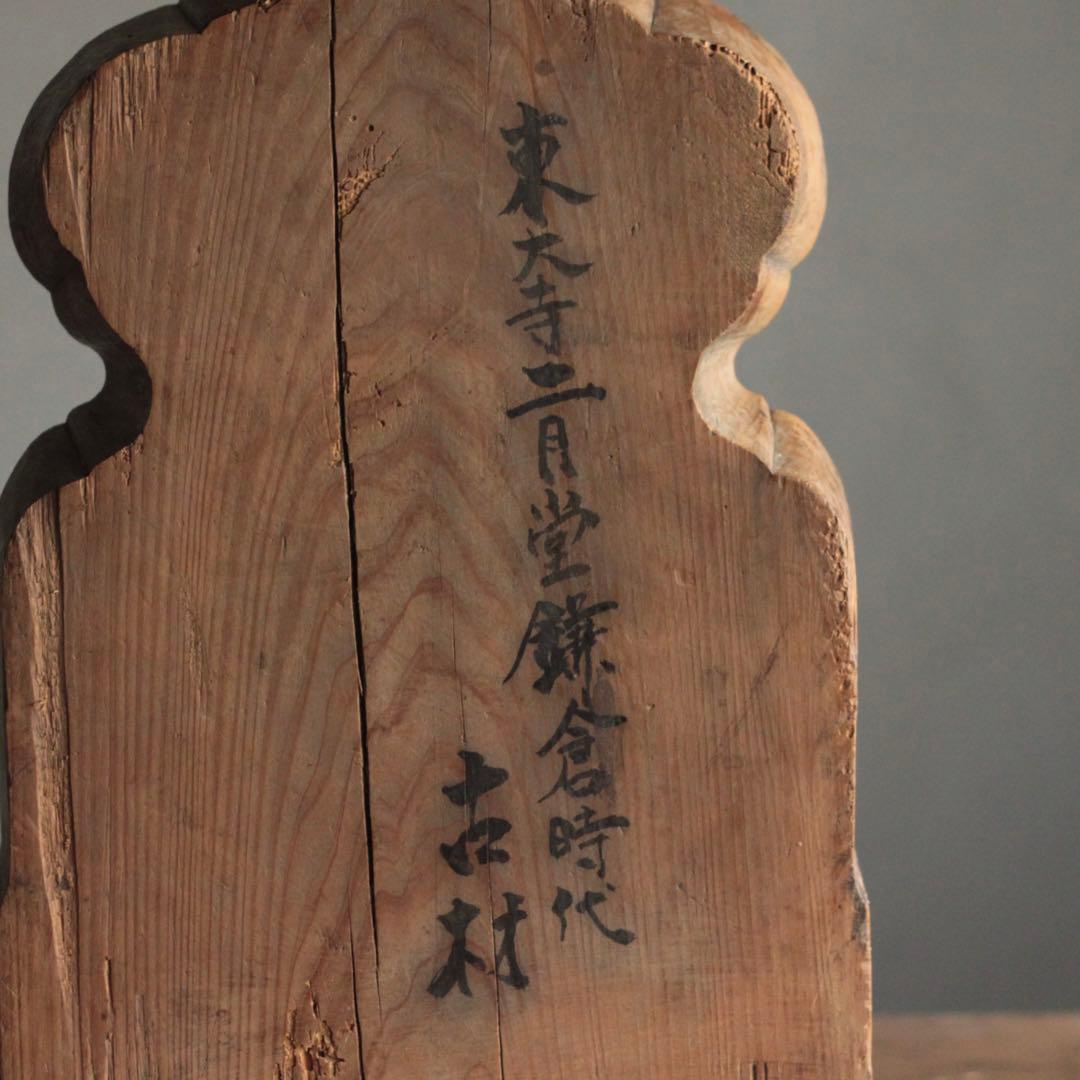 東大寺二月堂鎌倉時代
古材